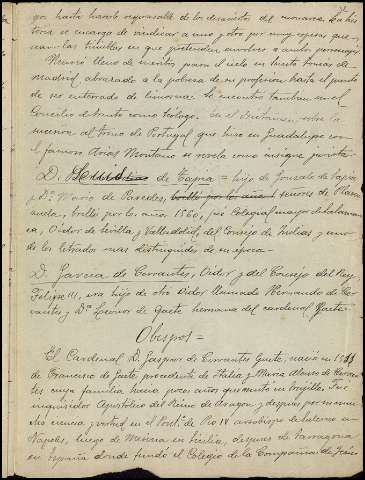 yor hasta hacerle responsable de los desaciertos del monarca. La his
toria se encarga de vindicar a uno y otro por muy espesas que
sean las tinieblas en que pretendan envolver a ambos personajes
Murió lleno de meritos para el cielo en tomas de
Madrid, abrazado a la pobreza de su profesion hasta el punto
de ser enterrado de limosna. Se encontró tambien en el
Concilio de Trento como teólogo. En el dictamen sobre la
sucesion al trono de Portugal que tuvo en Guadalupe con
el famoso Arias Montano se revela como insigne jurista.
D. Luis de Tapia = hijo de Gonzalo de Tapia
y Dª Maria de Paredes, brilló por los años señores de
brilló por los años 1560, fué Colegial mayor de Salaman
ca, Oidor de Sevilla y Valladolid, del Consejo de Indias y uno
de los letrados mas distinguidos de su época.
D. Garcia de Cervantes, Oidor y del Consejo del Rey
Felipe III, era hijo de otro Oidor llamado Hernando de Cer
vantes y Dª Leonor de Gaete hermana del cardenal Gaete.
Obispos =
El Cardenal D. Gaspar de Cervantes Gaete, nació en 1511
de Francisco de Gaete procedente de Italia y Maria Alonso de Cervan
tes cuya familia hacia pocos años que moró en Trujillo. Fue
inquisidor Apostolico del Reino de Aragon y despues por su mu
cha ciencia y virtud en el Pont. de Pio IV arzobispo de Salerno en
Napoles, luego de Mesina en Sicilia, despues de Tarragona
en España donde fundó el Colegio de la Compañia de Jesus